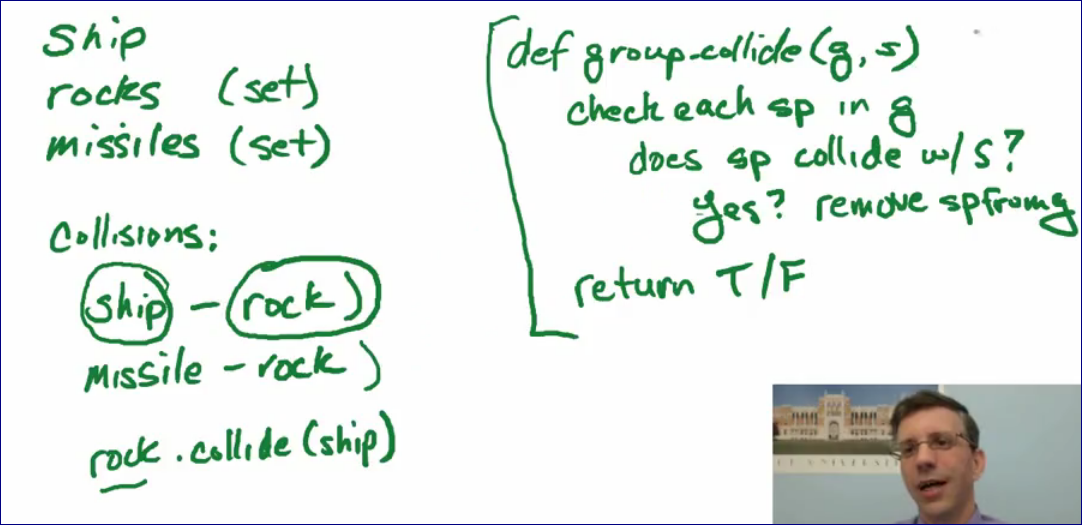 ship
rocks (set)
missiles (set)
Collisions:
ship - rock)
missile - rock)
rock.collide(ship)
def group_collide(g, s)
check each sp in g
does sp collide w/ s?
yes? remove sp from g
return T/F